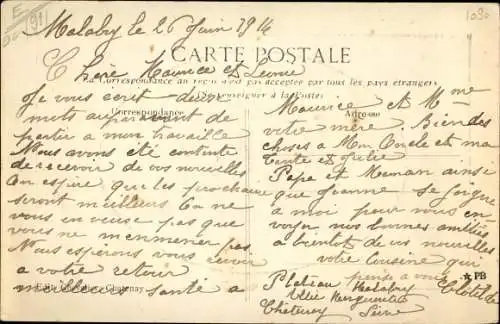 Malabry le 26 Juin 1914
CARTE POSTALE
Chère Maurice et Leonie
La Correspondance au recto n'est pas acceptée par tous les pays étrangers
(Se renseigner à la Poste)
Correspondance
Je vous écrit deux
mots aujourd'hui avant de
partir a mon travaille
Nous avons été contente
de recevoir de vos nouvelles
On espère que les prochaine
seront meilleurs On ne
vous en veuse pas que
vous ne m'enmenier pas
Nous espérons vous revoir
a votre retour
meilleures santé a
Adresse
Maurice et Mme
votre mère. Bien des
choses a Mon Oncle et ma
tante et
Papa et Maman ainsi
que Jeanne se joigne
a moi pour vous en
voyer nos bonnes amitiés
a bientôt de vos nouvelles
votre cousine qui
pense a vous
Clotilde
Plateau Malabry
Allée Marguerite
Chatenay Seine
Chatenay
PB
1030